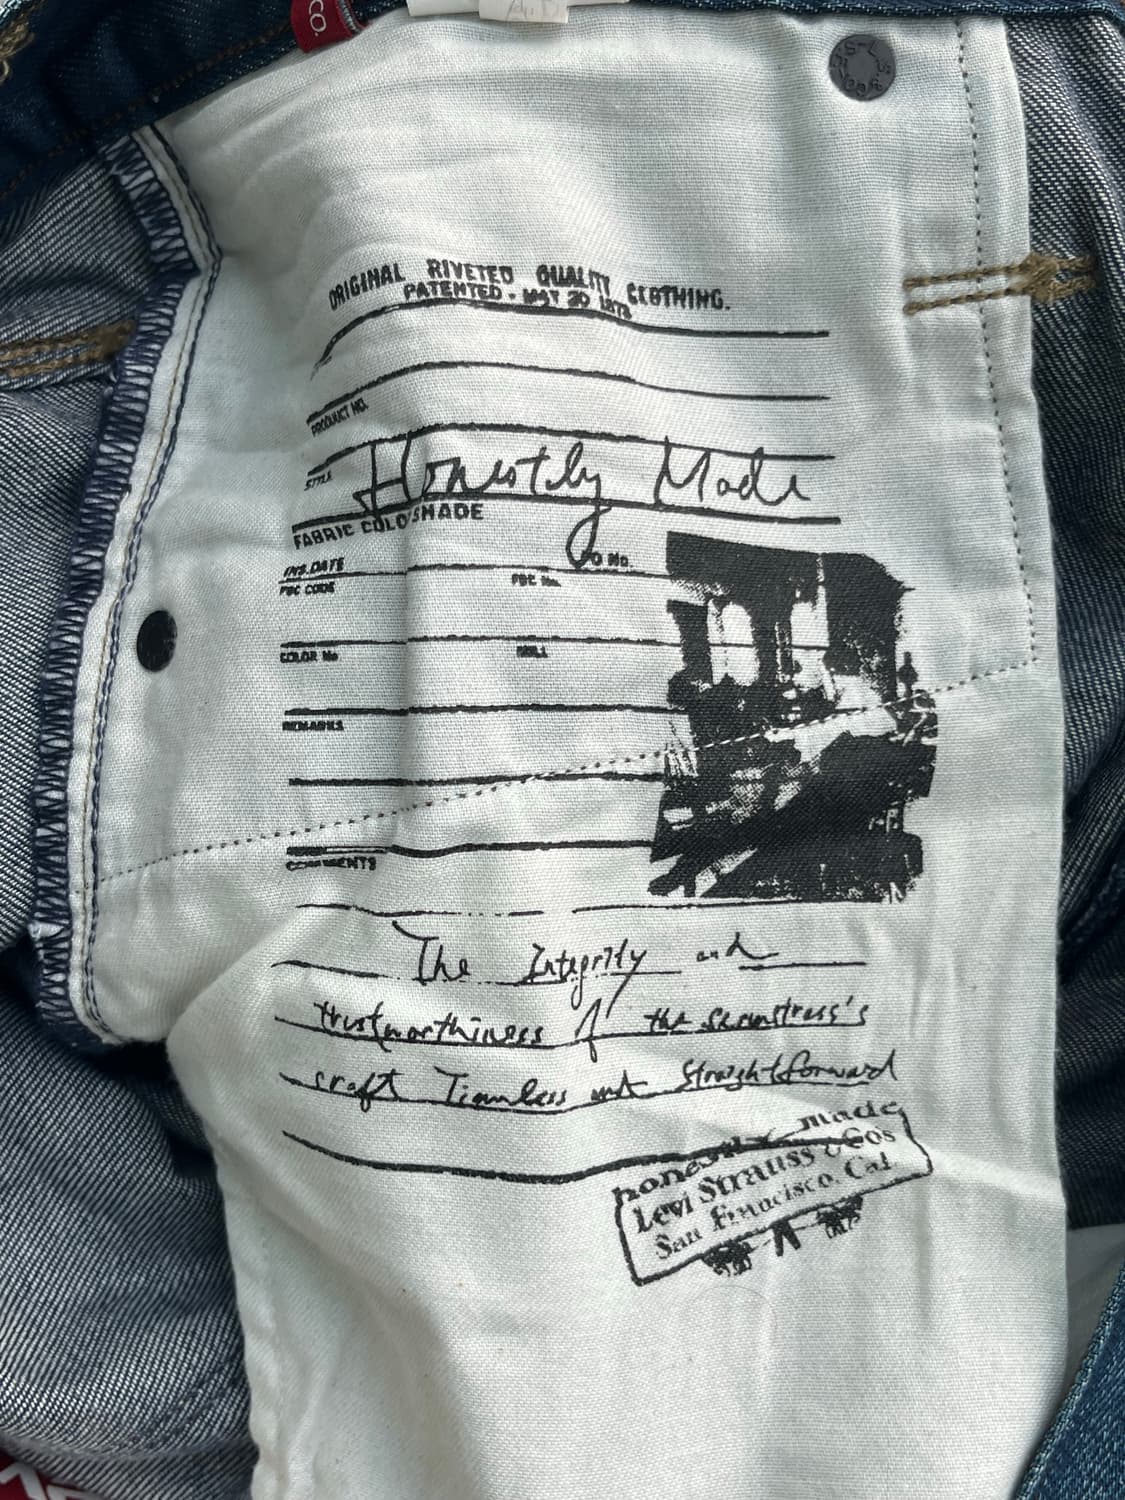 CO.
ORIGINAL RIVETED QUALITY CLOTHING.
PATENTED - MAY 20 1873
PRODUCT NO.
STYLE
Honestly Made
FABRIC COLO SHADE
INS. DATE
O No.
PBC CODE
COLOR No
MILL
REMARKS
COMMENTS
The Integrity and
trustworthiness of the seamstress's
craft Timeless and Straightforward
honestly made
Levi Strauss & Co's
San Francisco. Cal.